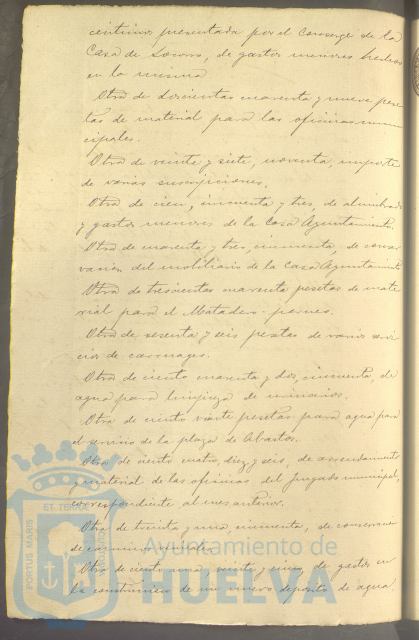 céntimos presentada por el Conserge de la
Casa de Socorro, de gastos menores hechos
en la misma
Otra de doscientas cuarenta y nueve pese
tas de material para las oficinas muni
cipales.
Otra de veinte y siete, noventa, importe
de varias suscripciones.
Otra de cien, cincuenta y tres, de alumbrado
y gastos menores de la Casa Ayuntamiento.
Otra de cuarenta y tres, cincuenta, de conser
vación del mobiliario de la Casa Ayuntamiento
Otra de trescientas cuarenta pesetas de mate
rial para el Matadero
Otra de sesenta y seis pesetas de varios servi
cios de carruages.
Otra de ciento cuarenta y dos, cincuenta, de
agua para limpieza de urinarios.
Otra de ciento veinte pesetas para agua para
el servicio de la plaza de Abastos.
Otra de ciento cuatro, diez y seis, de
y material de las oficinas del Juzgado municipal,
correspondiente al mes anterior.
Otra de treinta y una, cincuenta, de conservación
de caminos vecinales.
Otra de ciento una veinte y cinco, de gastos en
la construcción de un nuevo depósito de agua
PORTUS MARIS
ET TERRAE
Ayuntamiento de
HUELVA